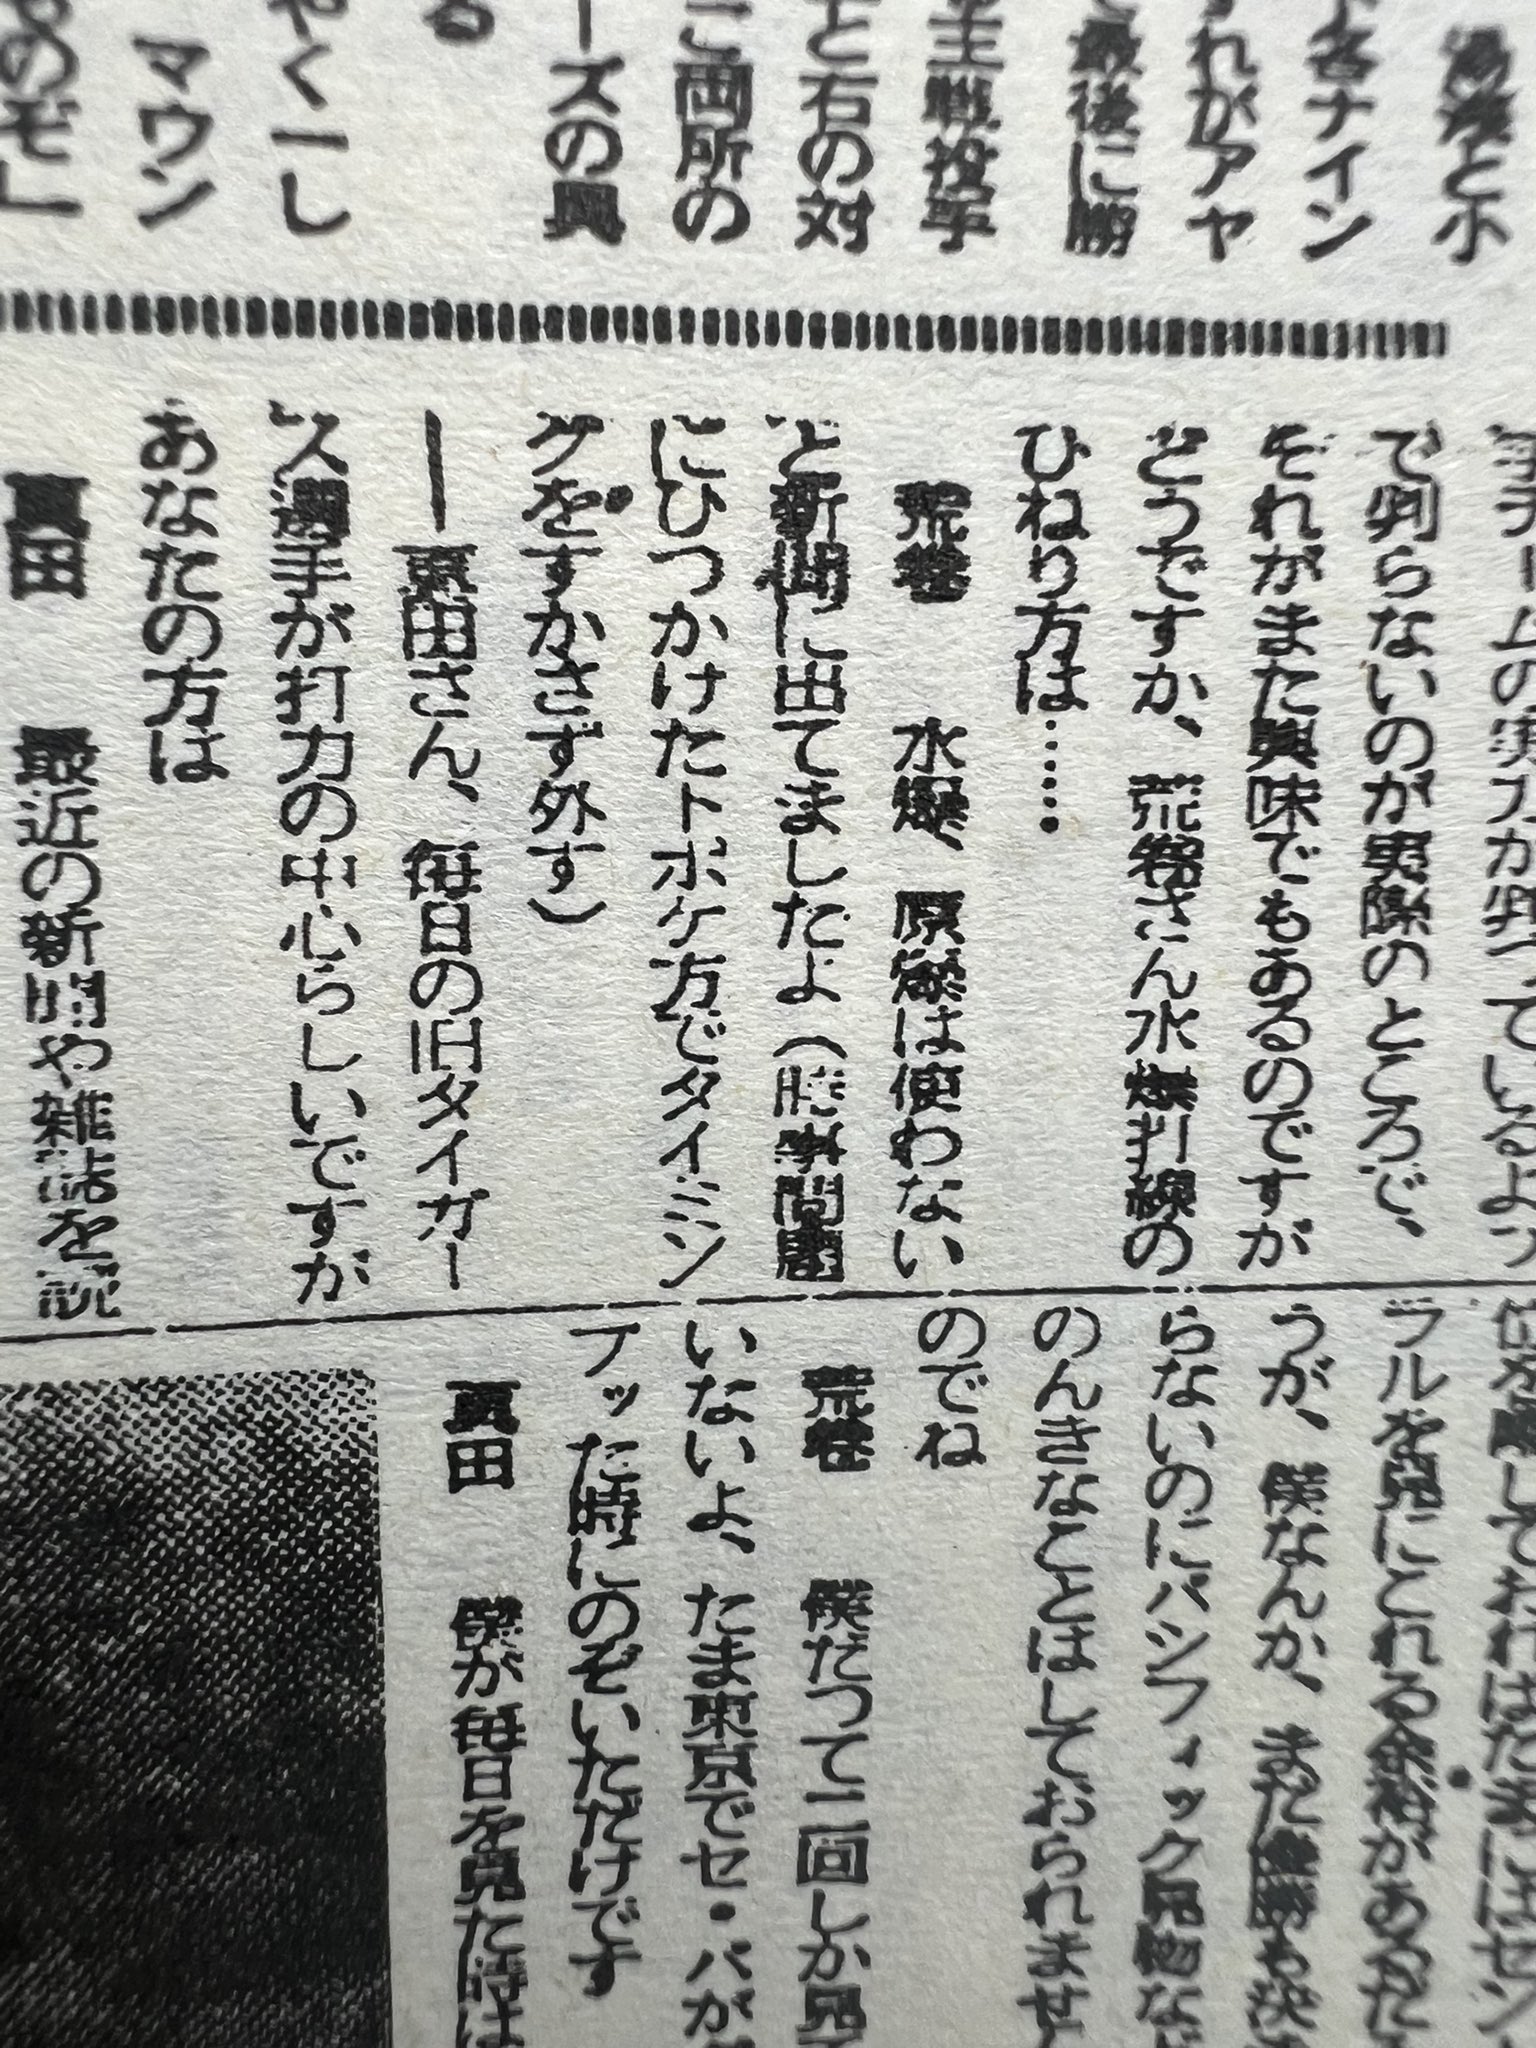 と小
ナイン
れがアヤ
最後に勝
主戦投手
と右の対
ご両所の
ーズの興
る
やくーし
マウン
チームの実力が判っているよう
で判らないのが実際のところで、
それがまた興味でもあるのですが
どうですか、荒巻さん水爆打線の
ひねり方は……
荒巻　水爆、原爆は使わない
と新聞に出てましたよ（時事問題
にひつかけたトボケ方でタイミン
グをすかさず外す）
―真田さん、毎日の旧タイガー
ス選手が打力の中心らしいですが
あなたの方は
真田　最近の新聞や雑誌を読
ラルを見にこれる余裕があるだ
うが、僕なんか、まだ優勝も決
らないのにパシフィック見物な
のんきなことはしておられませ
のでね
荒巻　僕だつて二回しか見て
いないよ、たま東京でセ・パが
アッた時にのぞいただけです
真田　僕が毎日を見た時は